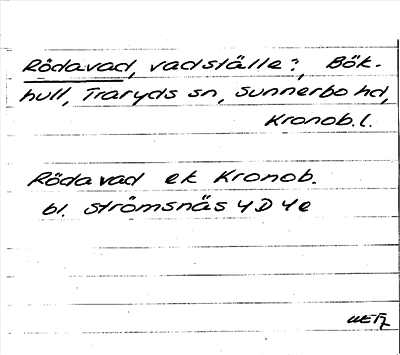 Rödavad, vadställe?, Bök-
hull, Traryds sn, Sunnerbo hd,
Kronob. l.
Rödavad ek Kronob.
bl. Strömsnäs 4D 4e